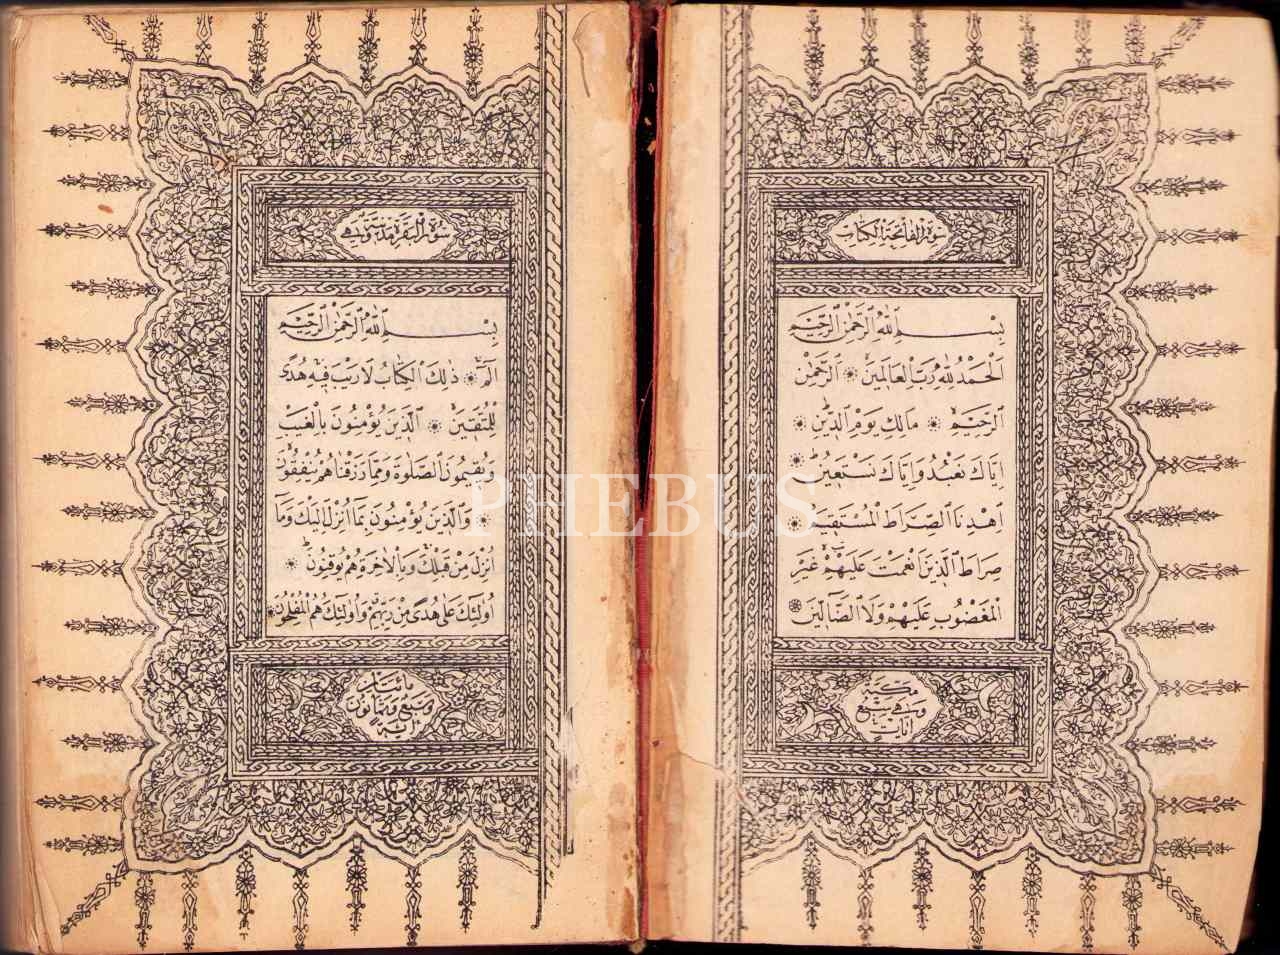 سورة الفاتحة الكتاب
بِسْمِ اللّٰهِ الرَّحْمٰنِ الرَّحِيمِ
اَلْحَمْدُ لِلّٰهِ رَبِّ الْعَالَمِينَ ۞ اَلرَّحْمٰنِ
الرَّحِيمِ ۞ مَالِكِ يَوْمِ الدِّينِ ۞
اِيَّاكَ نَعْبُدُ وَاِيَّاكَ نَسْتَعِينُ ۞
اِهْدِنَا الصِّرَاطَ الْمُسْتَقِيمَ ۞
صِرَاطَ الَّذِينَ اَنْعَمْتَ عَلَيْهِمْ غَيْرِ
الْمَغْضُوبِ عَلَيْهِمْ وَلَا الضَّالِّينَ ۞
مكية
وهي سبع
آيات
سورة البقرة مدنية وهي
بِسْمِ اللّٰهِ الرَّحْمٰنِ الرَّحِيمِ
الٓمٓ ۞ ذٰلِكَ الْكِتَابُ لَا رَيْبَ فِيهِ هُدًى
لِلْمُتَّقِينَ ۞ اَلَّذِينَ يُؤْمِنُونَ بِالْغَيْبِ
وَيُقِيمُونَ الصَّلٰوةَ وَمِمَّا رَزَقْنَاهُمْ يُنْفِقُونَ
۞ وَالَّذِينَ يُؤْمِنُونَ بِمَٓا اُنْزِلَ اِلَيْكَ وَمَٓا
اُنْزِلَ مِنْ قَبْلِكَ وَبِالْاٰخِرَةِ هُمْ يُوقِنُونَ ۞
اُولٰٓئِكَ عَلٰى هُدًى مِنْ رَبِّهِمْ وَاُولٰٓئِكَ هُمُ الْمُفْلِحُونَ ۞
مائتان
وسبع وثمانون
آية
PHEBUS